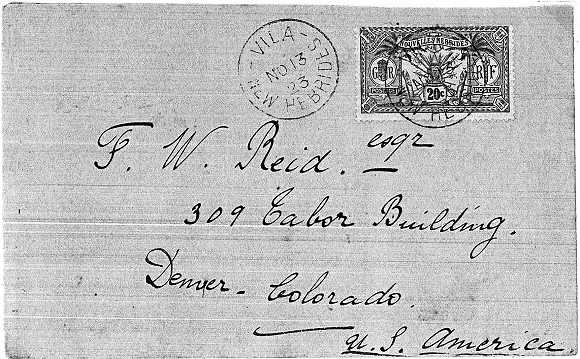 VILA - NEW HEBRIDES
NO 13
23
NOUVELLES HEBRIDES
G R
R F
POSTES
20c
POSTES
F. W. Reid. esqr
309 Tabor Building.
Denver - Colorado.
U.S. America.